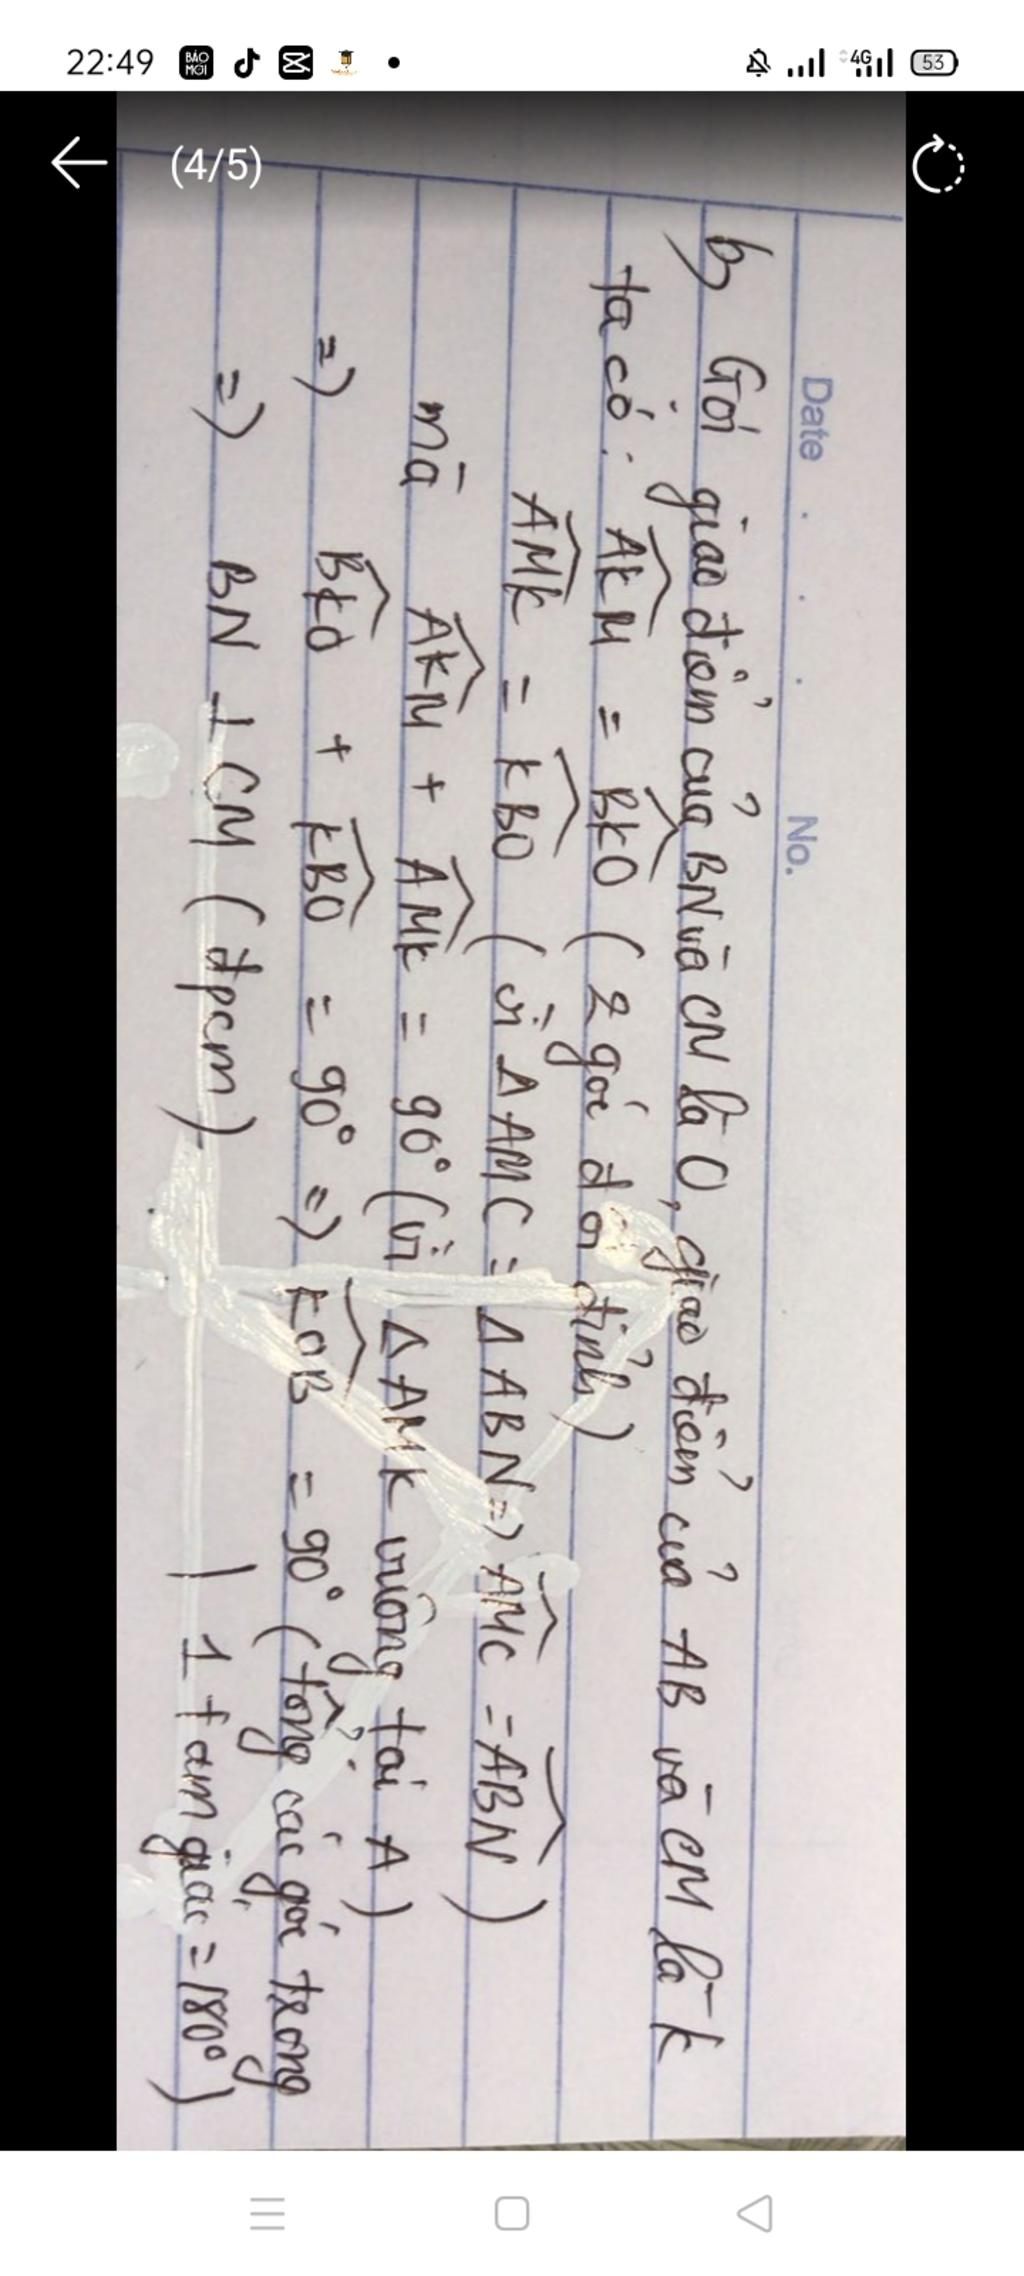 22:49
BÁO MỚI
4G
53
(4/5)
Date . . . No.
b, Gọi giao điểm của BN và CM là O, giao điểm của AB và CM là K
ta có: AKM = BKO (2 góc đối đỉnh)
AMK = KBO (vì Δ AMC = Δ ABN => AMC = ABN)
mà AKM + AMK = 90° (vì Δ AMK vuông tại A)
=> BKO + KBO = 90° => KOB = 90° (tổng các góc trong
=> BN ⊥ CM (đpcm) | 1 tam giác = 180°)